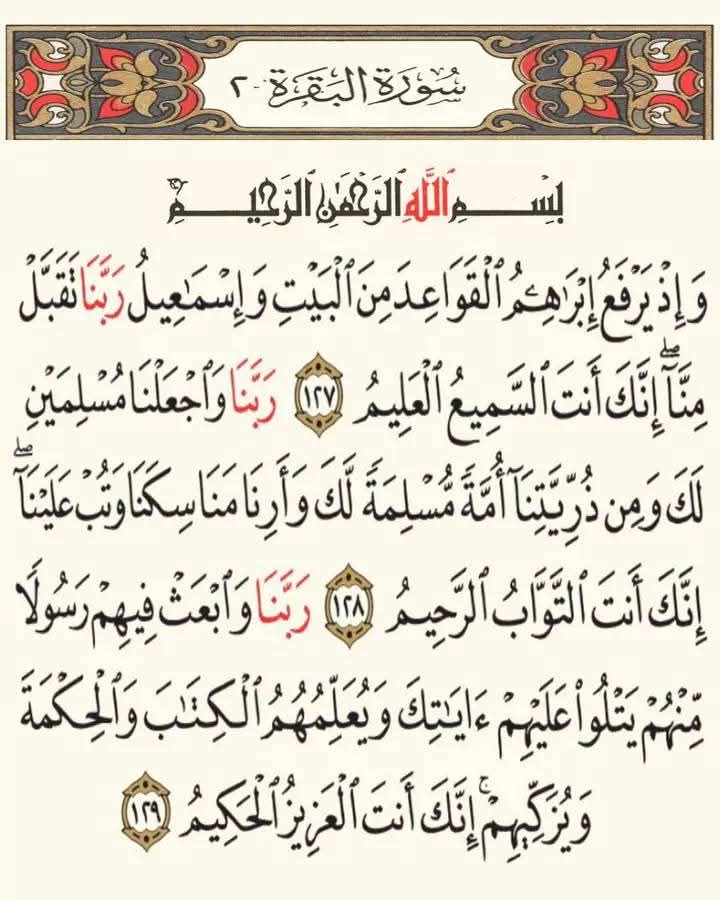 سُورَةُ البَقَرَةِ - ٢
بِسْمِ ٱللَّهِ ٱلرَّحْمَٰنِ ٱلرَّحِيمِ
وَإِذْ يَرْفَعُ إِبْرَٰهِـۧمُ ٱلْقَوَاعِدَ مِنَ ٱلْبَيْتِ وَإِسْمَٰعِيلُ رَبَّنَا تَقَبَّلْ
مِنَّآ ۖ إِنَّكَ أَنتَ ٱلسَّمِيعُ ٱلْعَلِيمُ ١٢٧ رَبَّنَا وَٱجْعَلْنَا مُسْلِمَيْنِ
لَكَ وَمِن ذُرِّيَّتِنَآ أُمَّةً مُّسْلِمَةً لَّكَ وَأَرِنَا مَنَاسِكَنَا وَتُبْ عَلَيْنَآ ۖ
إِنَّكَ أَنتَ ٱلتَّوَّابُ ٱلرَّحِيمُ ١٢٨ رَبَّنَا وَٱبْعَثْ فِيهِمْ رَسُولًا
مِّنْهُمْ يَتْلُوا۟ عَلَيْهِمْ ءَايَٰتِكَ وَيُعَلِّمُهُمُ ٱلْكِتَٰبَ وَٱلْحِكْمَةَ
وَيُزَكِّيهِمْ ۚ إِنَّكَ أَنتَ ٱلْعَزِيزُ ٱلْحَكِيمُ ١٢٩